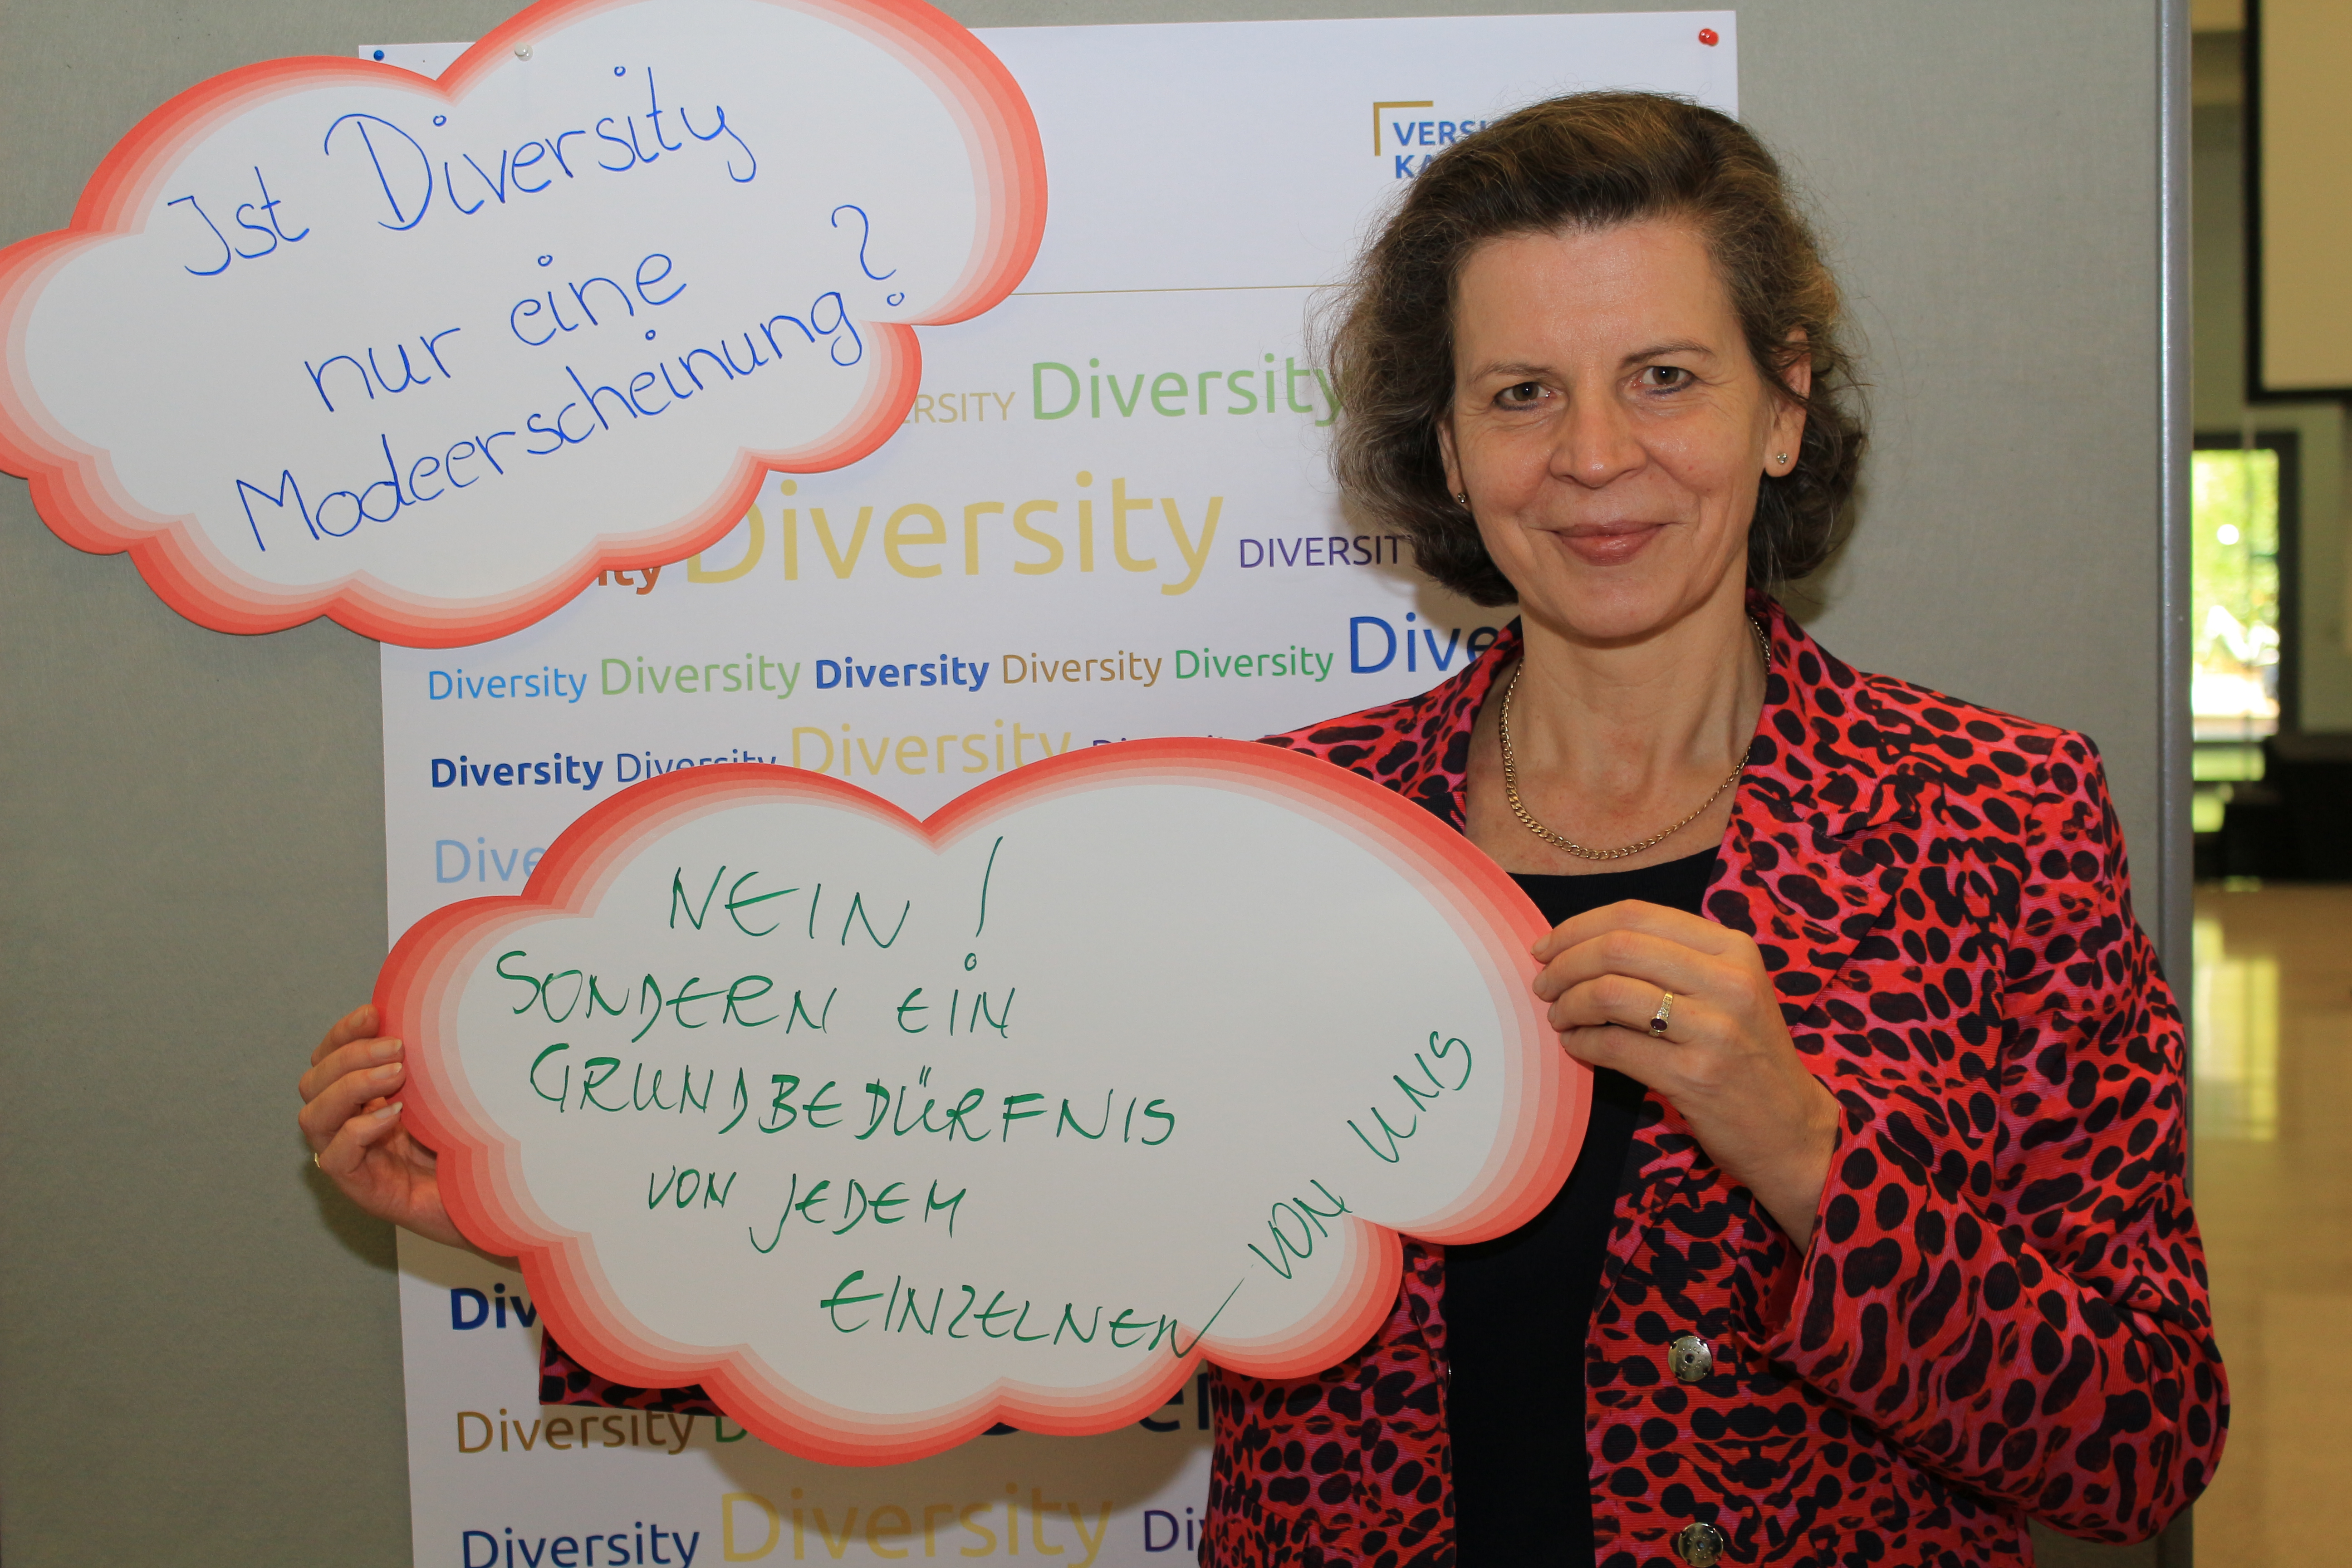 Ist Diversity
nur eine
Modeerscheinung?
Diversity
Diversity DIVERSITY
Diversity Diversity Diversity Diversity Diversity
Diversity Diversity Diversity
NEIN!
SONDERN EIN
GRUNDBEDÜRFNIS
VON JEDEM
EINZELNEN – VON UNS
Diversity
Diversity Diversity